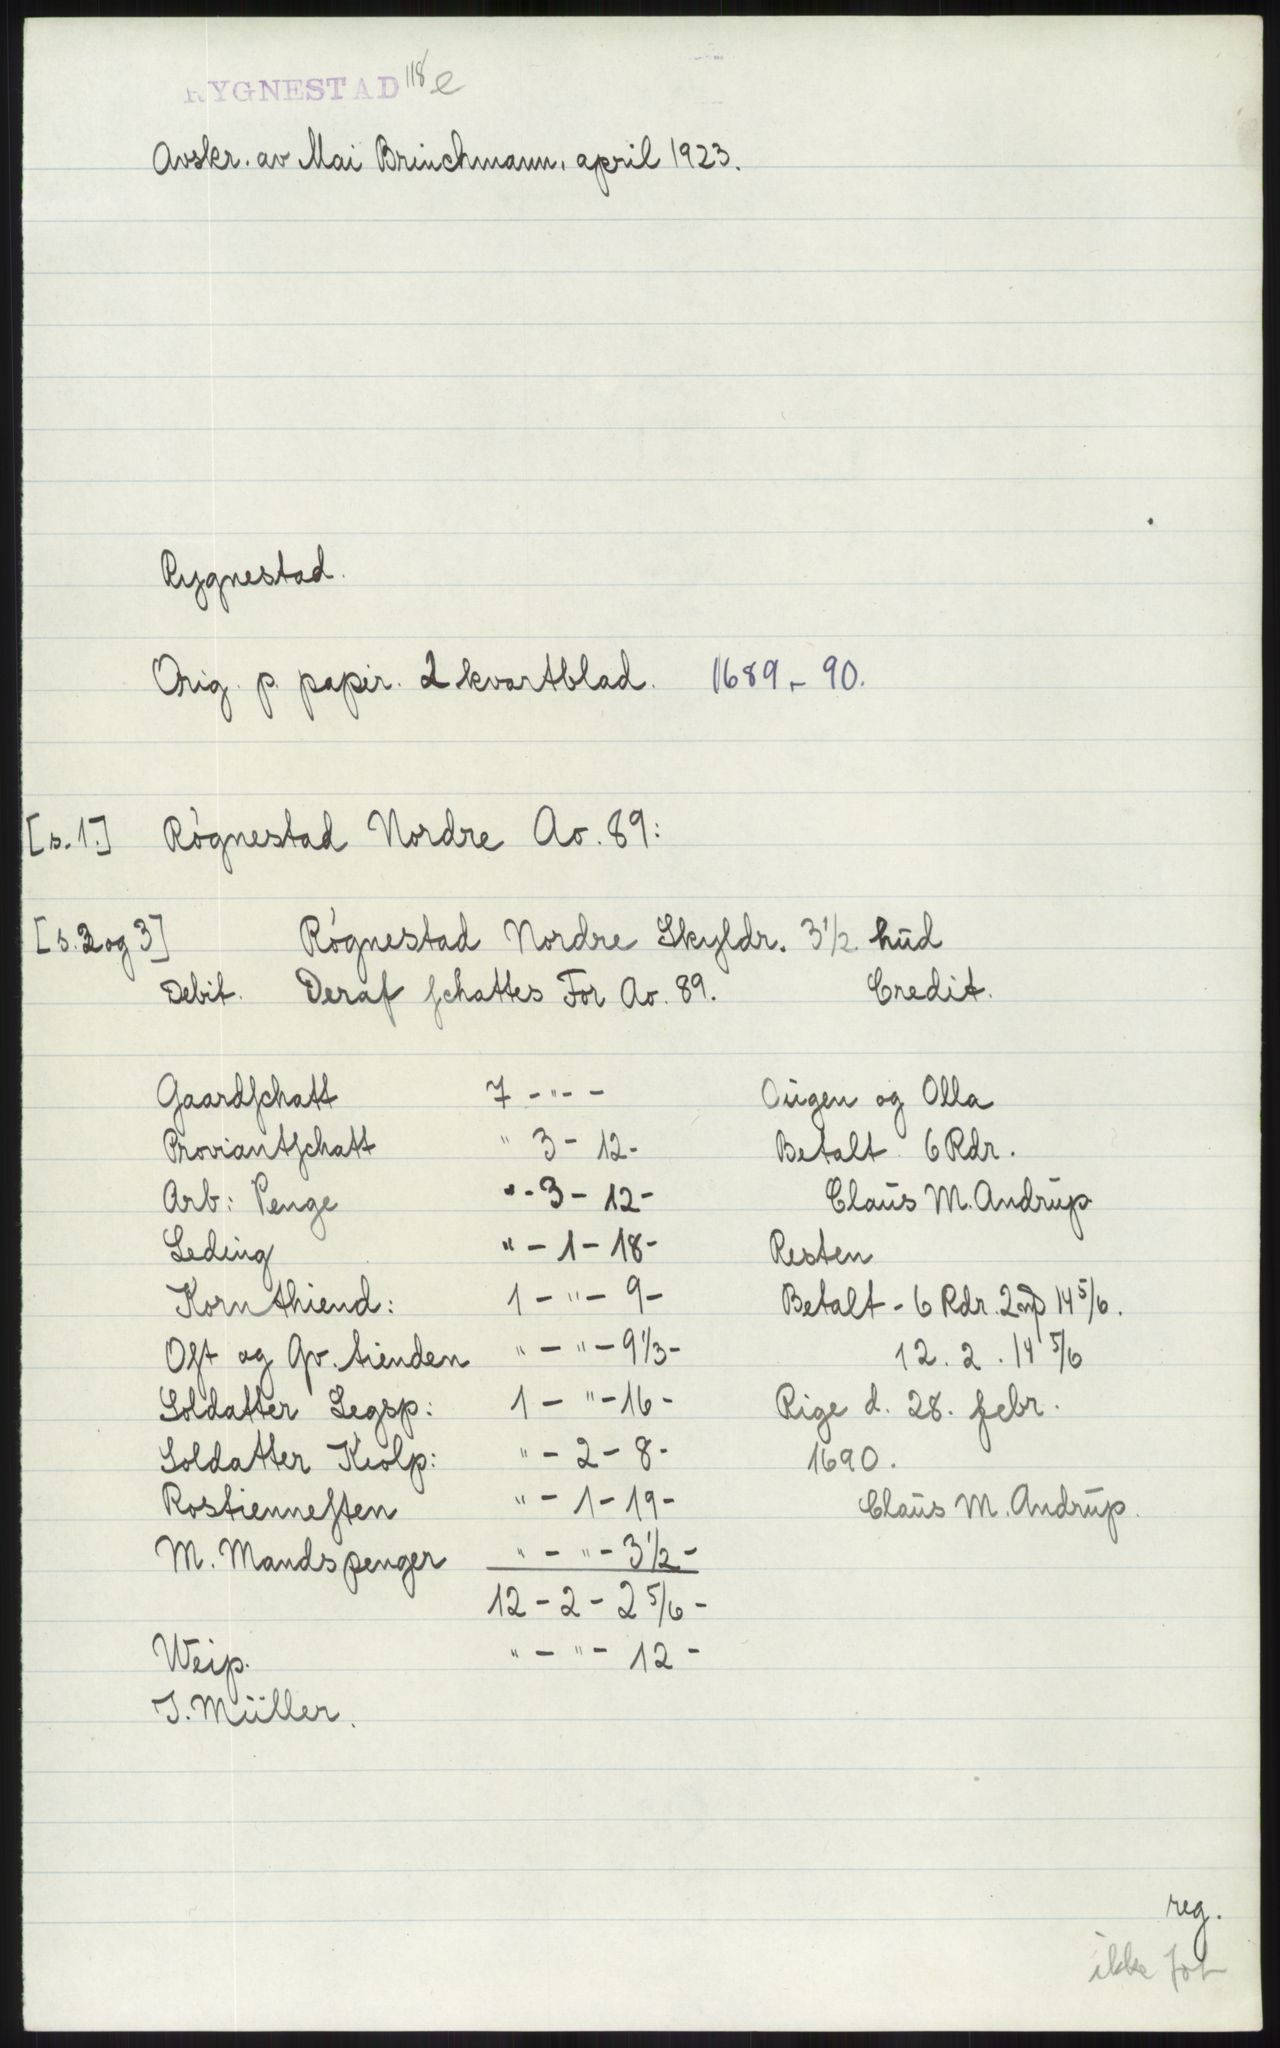 RYGNESTAD 118 e
Avskr. av Mai Brinchmann, april 1923.
Rygnestad.
Orig. p. papir. 2 kvartblad. 1689 - 90.
[s. 1.] Røgnestad Nordre Ao. 89:
[s. 2 og 3] Røgnestad Nordre Skyldr. 3 1/2 hŭd
Debit. Deraf schattes For Ao. 89. Credit.
Gaardschatt 7 - " - - Oŭgen og Olla
Proviantschatt " 3 - 12 - Betalt 6 Rdr.
Arb: Penge " - 3 - 12 - Claŭs M. Andrŭp
Leding " - 1 - 18 - Resten
Korn thiend: 1 - " - 9 - Betalt - 6 Rdr. 2 mȷ 14 5/6.
Ost og Qv. tienden " - " - 9 1/3 - 12. 2. 14 5/6
Soldatter Legsp: 1 - " - 16 - Rige d. 28. febr.
Soldatter Kiolp: " - 2 - 8 - 1690.
Rostiennesten " - 1 - 19 - Claŭs M. Andrŭp.
M. Mandspenger " - " - 3 1/2 -
12 - 2 - 2 5/6 -
Weip. " - " - 12 -
J. Müller.
reg.
ikke fot